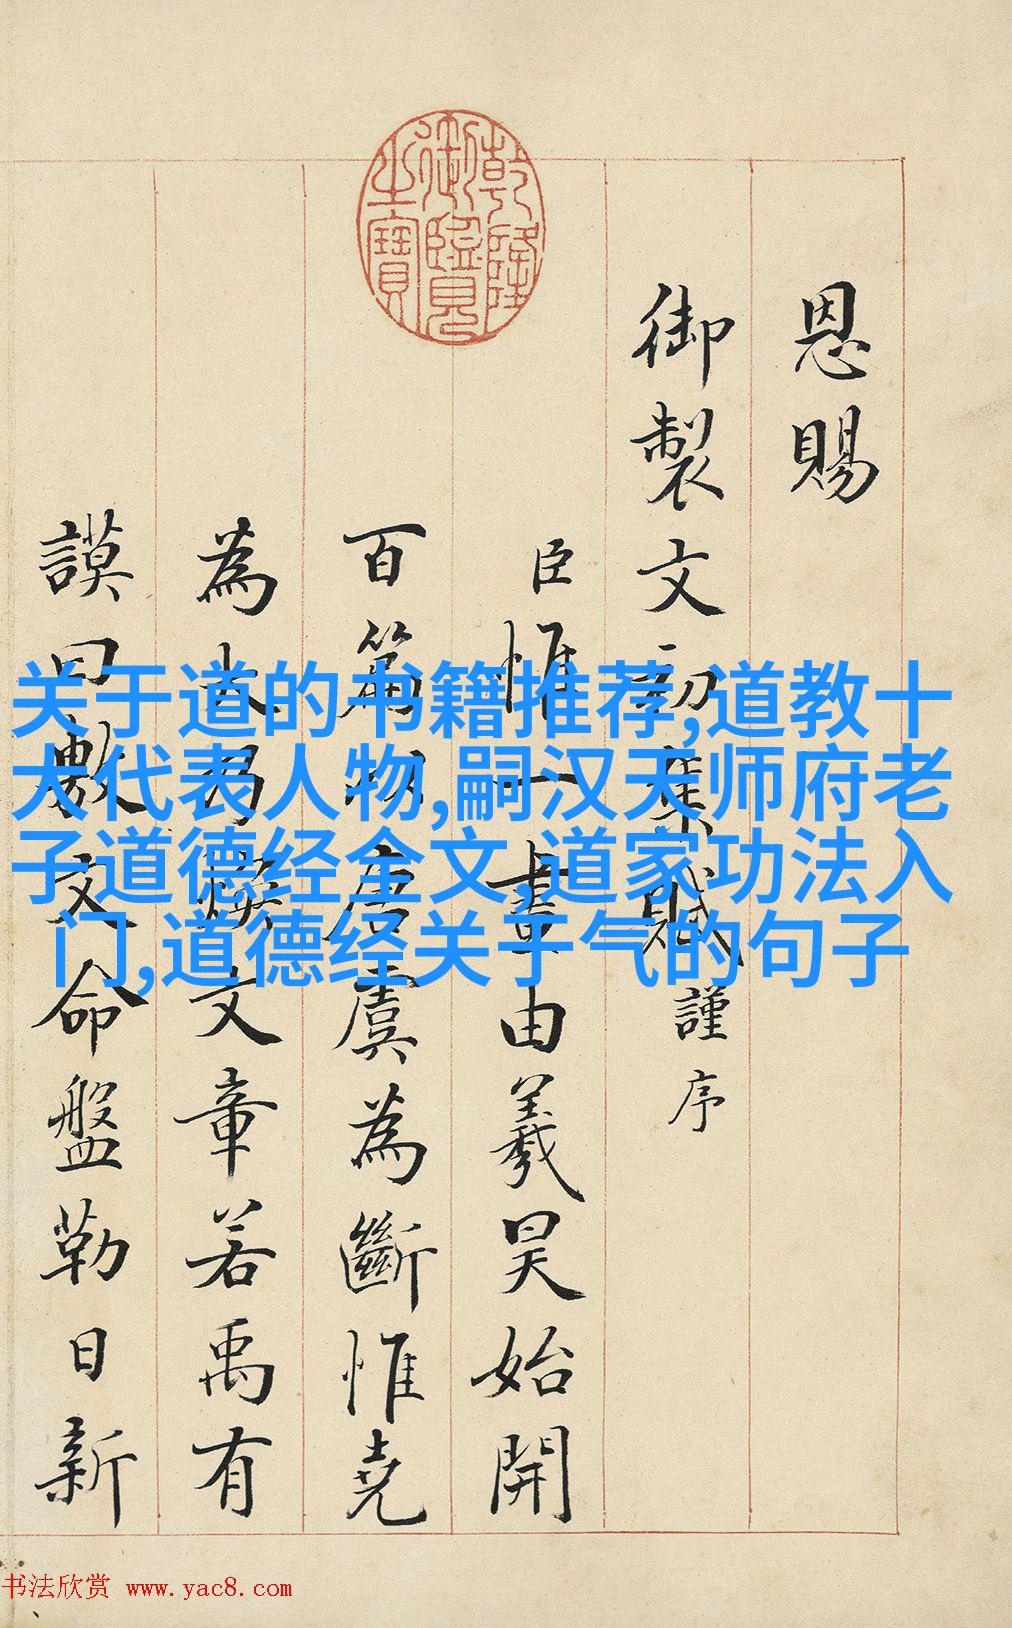 乾隆御覽之寶
恩賜
御製文初集謹序
臣惟一畫由羲昊始開
百篇以唐虞為斷惟堯
為大煥文章若禹有
謨曰敷文命盤勒日新
关于道的书籍推荐,道教十
大代表人物,嗣汉天师府老
子道德经全文,道家功法入
门,道德经关于气的句子
书法欣赏 www.yac8.com